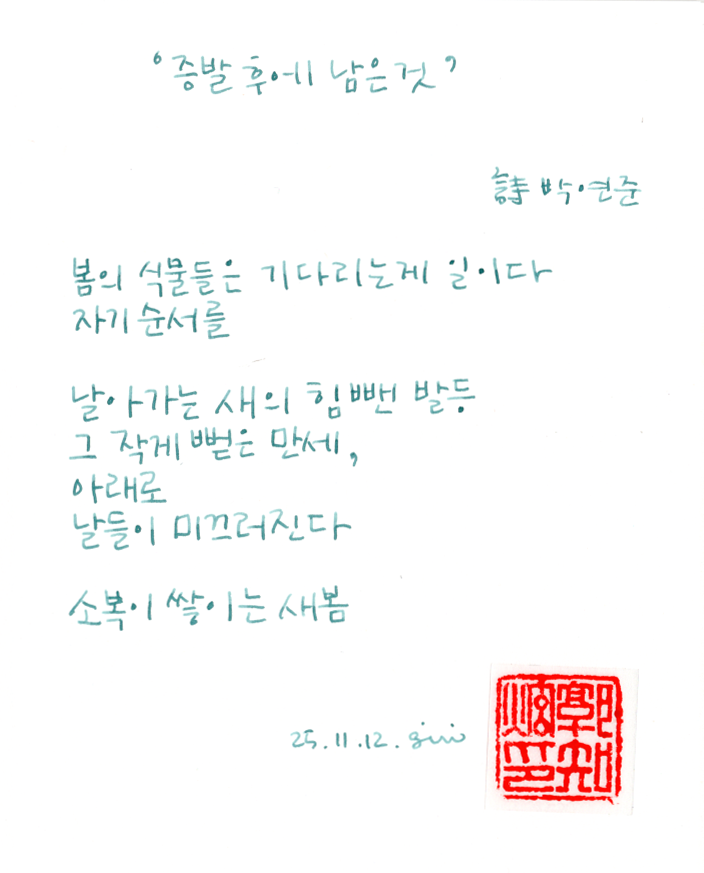 ‘증발 후에 남은것’
詩 박연준
봄의 식물들은 기다리는게 일이다
자기 순서를
날아가는 새의 힘뺀 발등
그 작게 뻗은 만세,
아래로
날들이 미끄러진다
소복이 쌓이는 새봄
25.11.12.